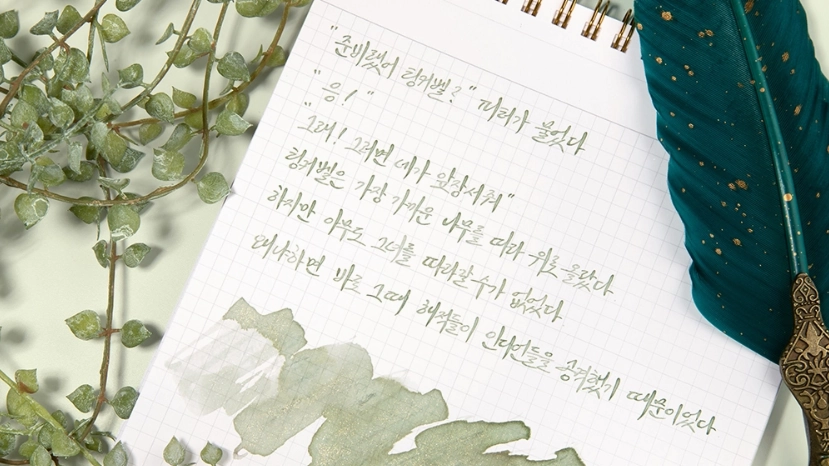 "준비됐어 팅커벨?" 피터가 물었다
"응!"
"그래! 그러면 네가 앞장서줘"
팅커벨은 가장 가까운 나무를 따라 위로 올랐다
하지만 아무도 그녀를 따라갈 수가 없었다
왜냐하면 바로 그때 해적들이 인디언들을 공격했기 때문이었다